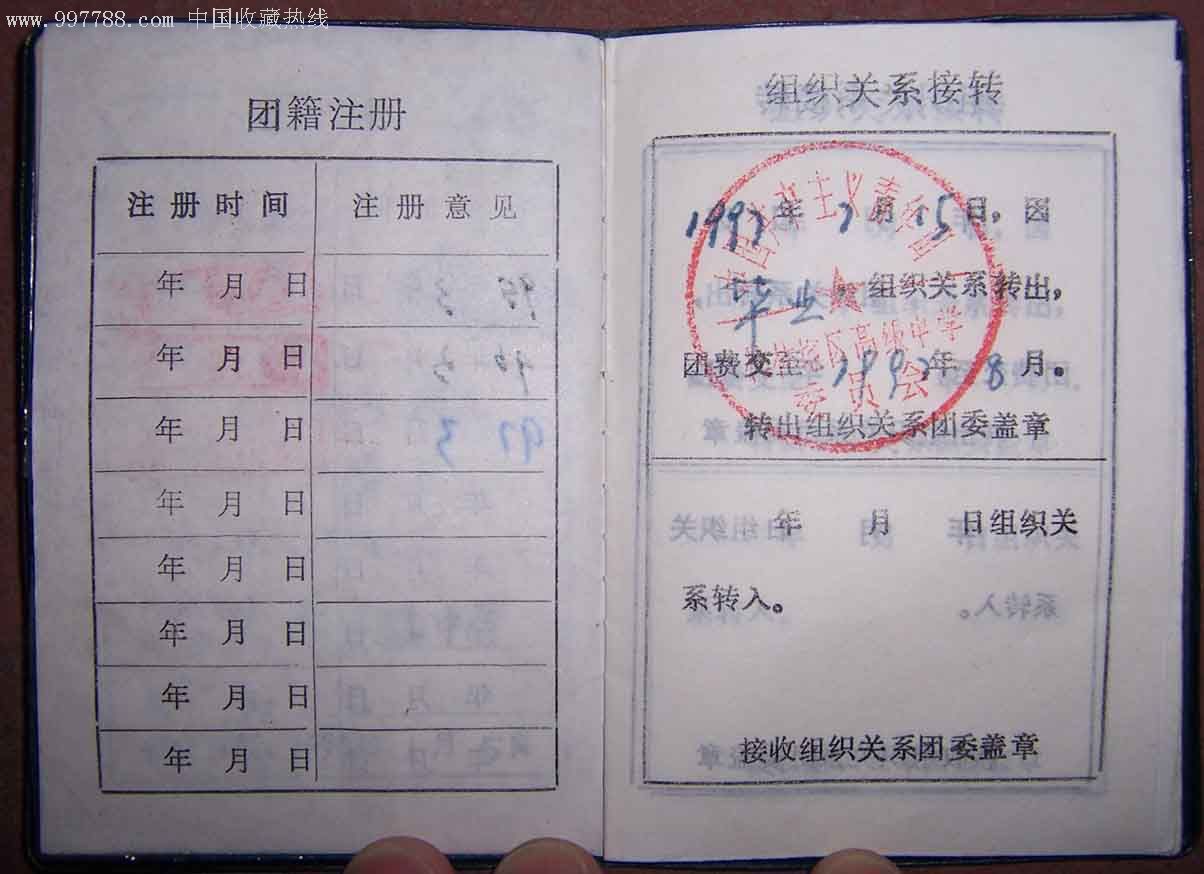 www.997788.com 中国收藏热线
团籍注册
注册时间 注册意见
年 月 日
年 月 日
年 月 日
年 月 日
年 月 日
年 月 日
年 月 日
年 月 日
组织关系接转
1997年7月15日，因
毕业 组织关系转出，
团费交至 1997年8月。
转出组织关系团委盖章
年 月 日组织关
系转入。
接收组织关系团委盖章
高级中学
委员会